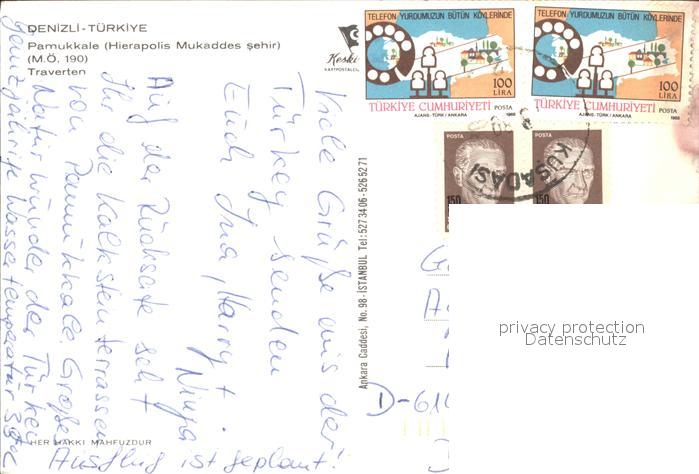 DENIZLI-TÜRKİYE
Pamukkale (Hierapolis Mukaddes şehir)
(M.Ö. 190)
Traverten
Keski
KARTPOSTALCIL
TELEFON YURDUMUZUN BÜTÜN KÖYLERİNDE
100
LİRA
TÜRKİYE CUMHURİYETİ POSTA
AJANS-TÜRK/ANKARA 1988
TELEFON YURDUMUZUN BÜTÜN KÖYLERİNDE
100
LİRA
TÜRKİYE CUMHURİYETİ POSTA
AJANS-TÜRK/ANKARA 1988
POSTA
150
POSTA
150
KUŞADASI
Viele Grüße aus der
Türkey senden
Euch Ina, Harry +
Ninja
Auf der Rückseite seht
Ihr die Kalksteinterrassen
von Pamukkale. Großes
Naturwunder der Türkei
ganzjährige Wassertemperatur 36°C
Ausflug ist geplant!
Ankara Caddesi, No. 98-İSTANBUL Tel: 527 34 06 - 526 52 71
D-610
HER HAKKI MAHFUZDUR
privacy protection
Datenschutz